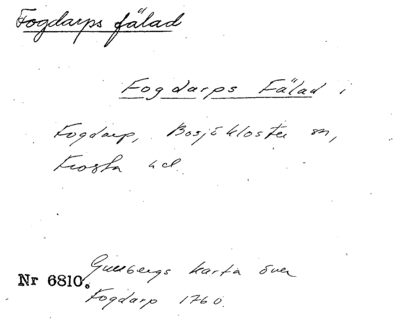 Fogdarps fälad
Fogdarps Fälad i
Fogdarp, Bosjökloster sn,
Frosta hd
Gullbergs karta över
Nr 6810.
Fogdarp 1760.